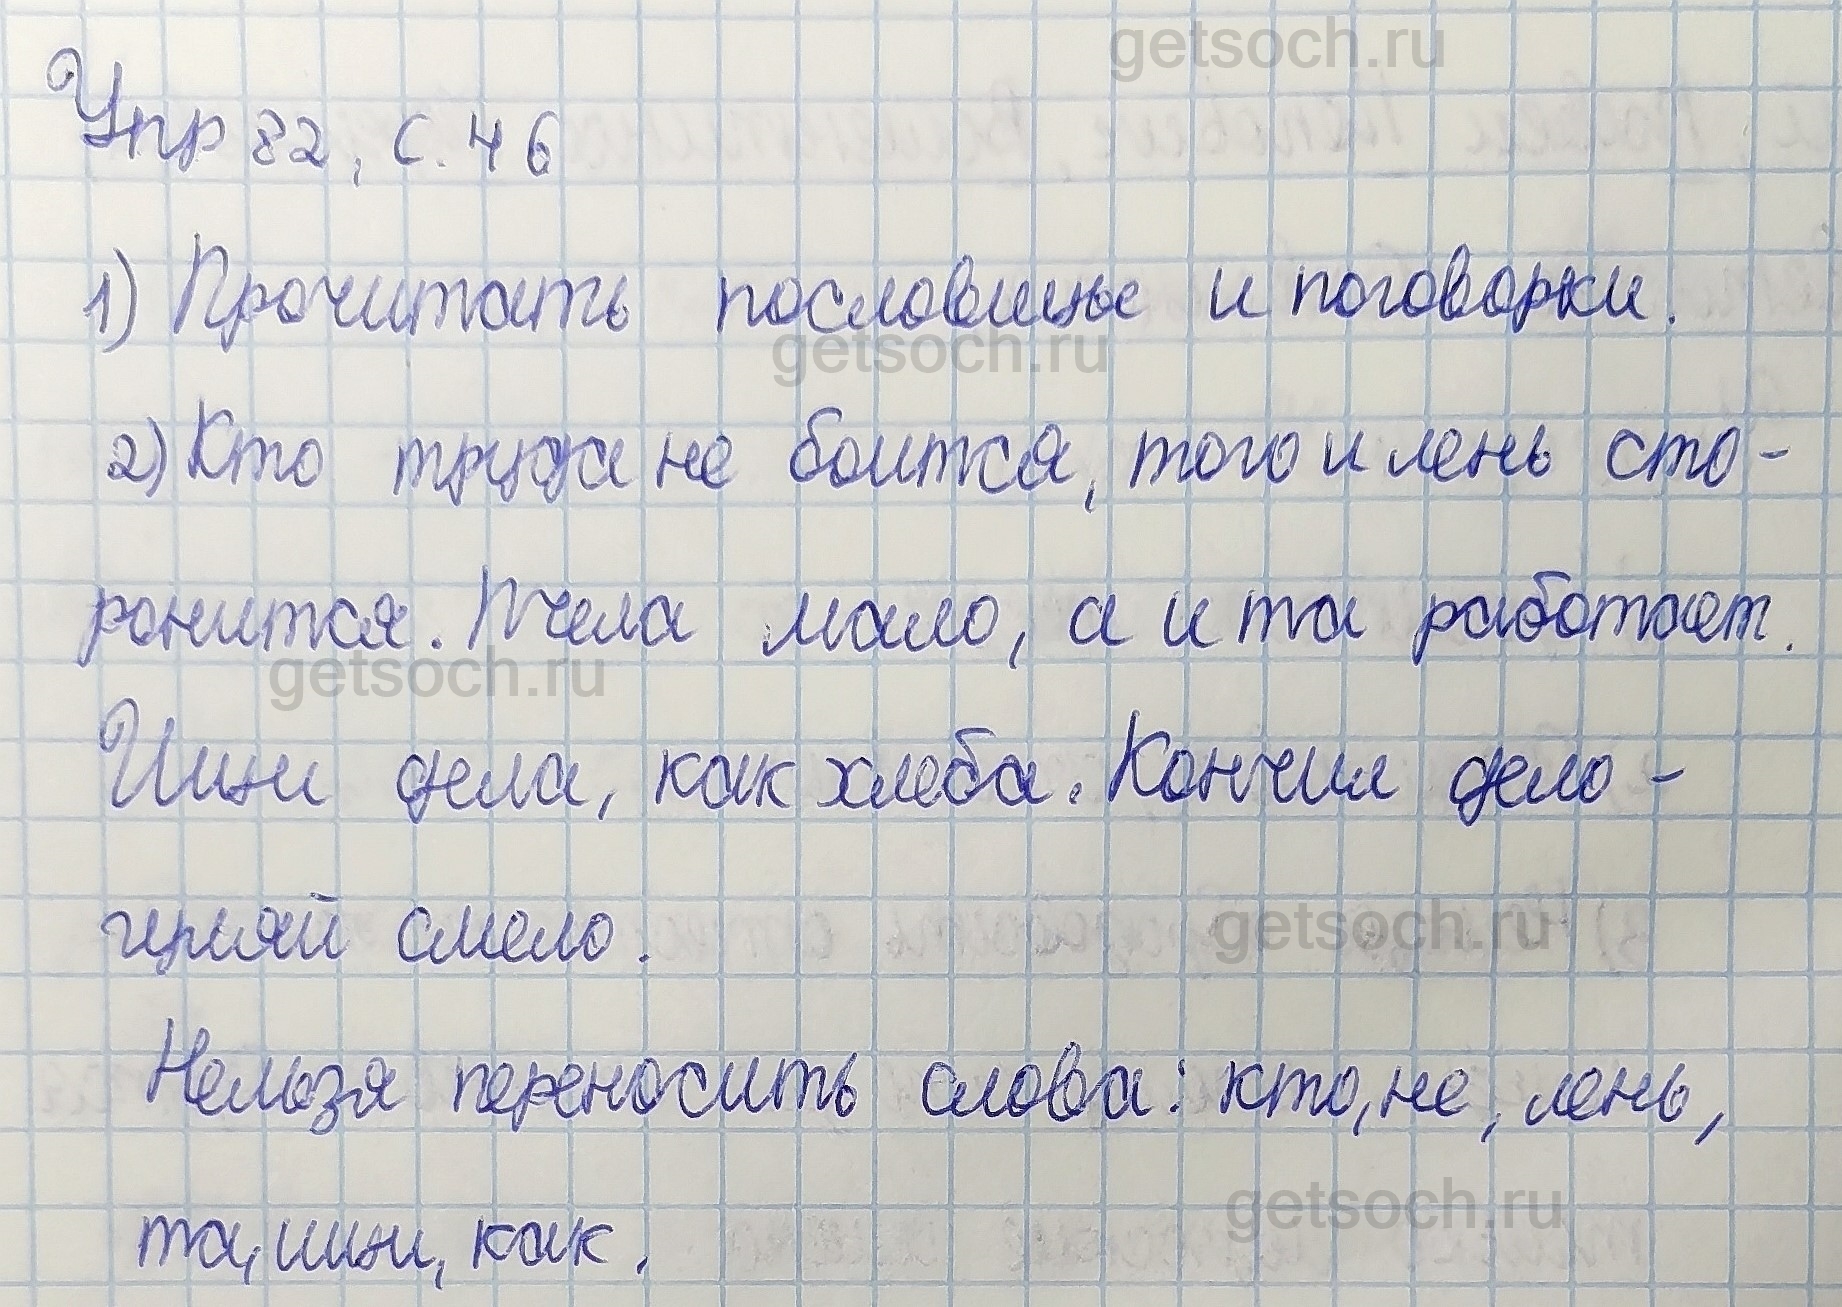 getsoch.ru
Упр 82, с. 46
1) Прочитать пословицы и поговорки.
getsoch.ru
2) Кто труда не боится, того и лень сто-
ронится. Пчела мало, а и та работает.
getsoch.ru
Ищи дела, как хлеба. Кончил дело -
гуляй смело.
getsoch.ru
Нельзя переносить слова: кто, не, лень,
getsoch.ru
та, ищи, как.